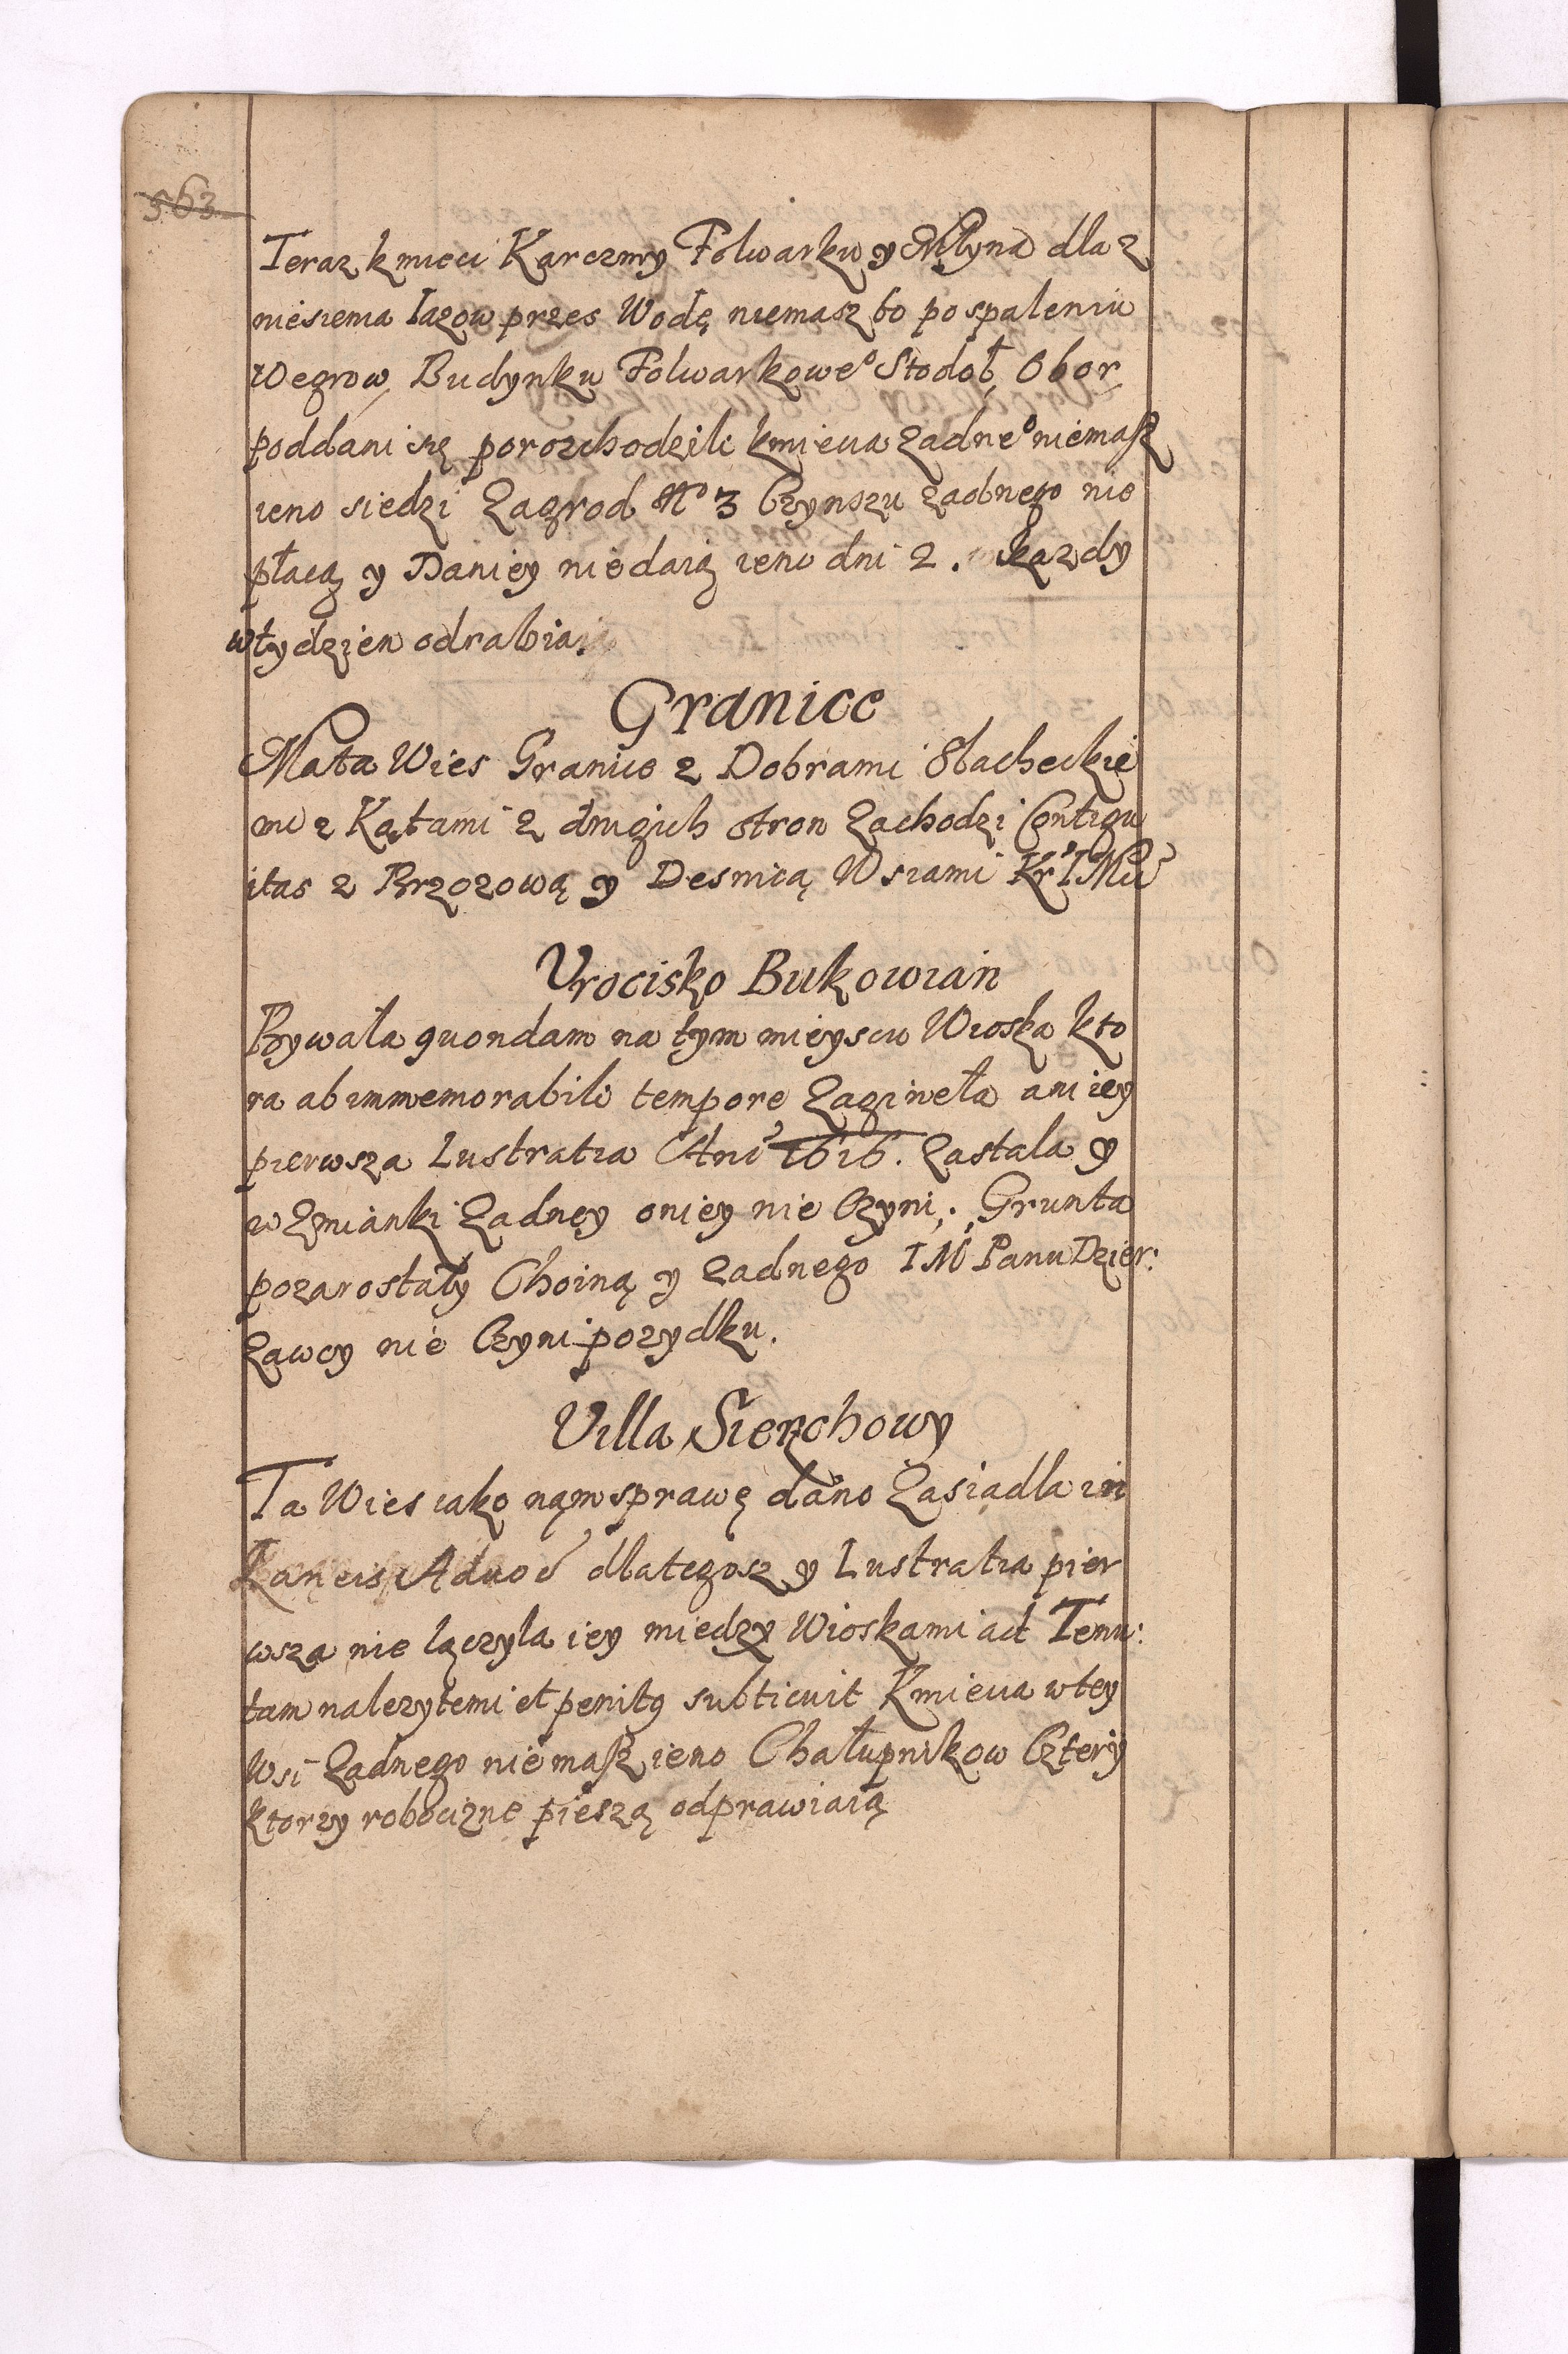 563
Teraz kmieci Karczmy Folwarku y Młyna dla z
niesienia Iazow przes Wodę niemasz bo po spaleniu
Wegrow, Budynku Folwarkowe° Stodoł, Obor,
poddani się porozchodzili kmiecia zadne° niemasz
ieno siedzi Zagrod N° 3 Czynszu zadnego nie
płacą y Daniey niedaią ieno dni 2. kazdy
w tydzien odrabia.
Granice
Ma ta Wies Granice z Dobrami Slacheckie
mi z Kątami z drugich stron Zachodzi Contigu
itas z Brzozową y Desnicą Wsiami Kr I Mci
Vrocisko Bukowian
Bywała quondam na tym mieyscu Wioska kto
ra ab immemorabili tempore zagineła ani iey
pierwsza Lustratia Ani 1616. zastala y
wzmianki zadney oniey nie Czyni; Grunta
pozarostały Choiną y zadnego IM Panu Dzier:
zawcy nie Czyni pozydku.
Villa Sierchowy
Ta Wies iako nąm sprawę dano Zasiadla in
dlategosz y Lustratia pier
wsza nie lączyla iey miedzy Wioskami ad Tenu:
tam nalezytemi et penitg subticuit Kmiecia wtey
Wsi Zadnego niemasz ieno Chałupnikow Cztery
ktorzy robocizne pieszą odprawiaią